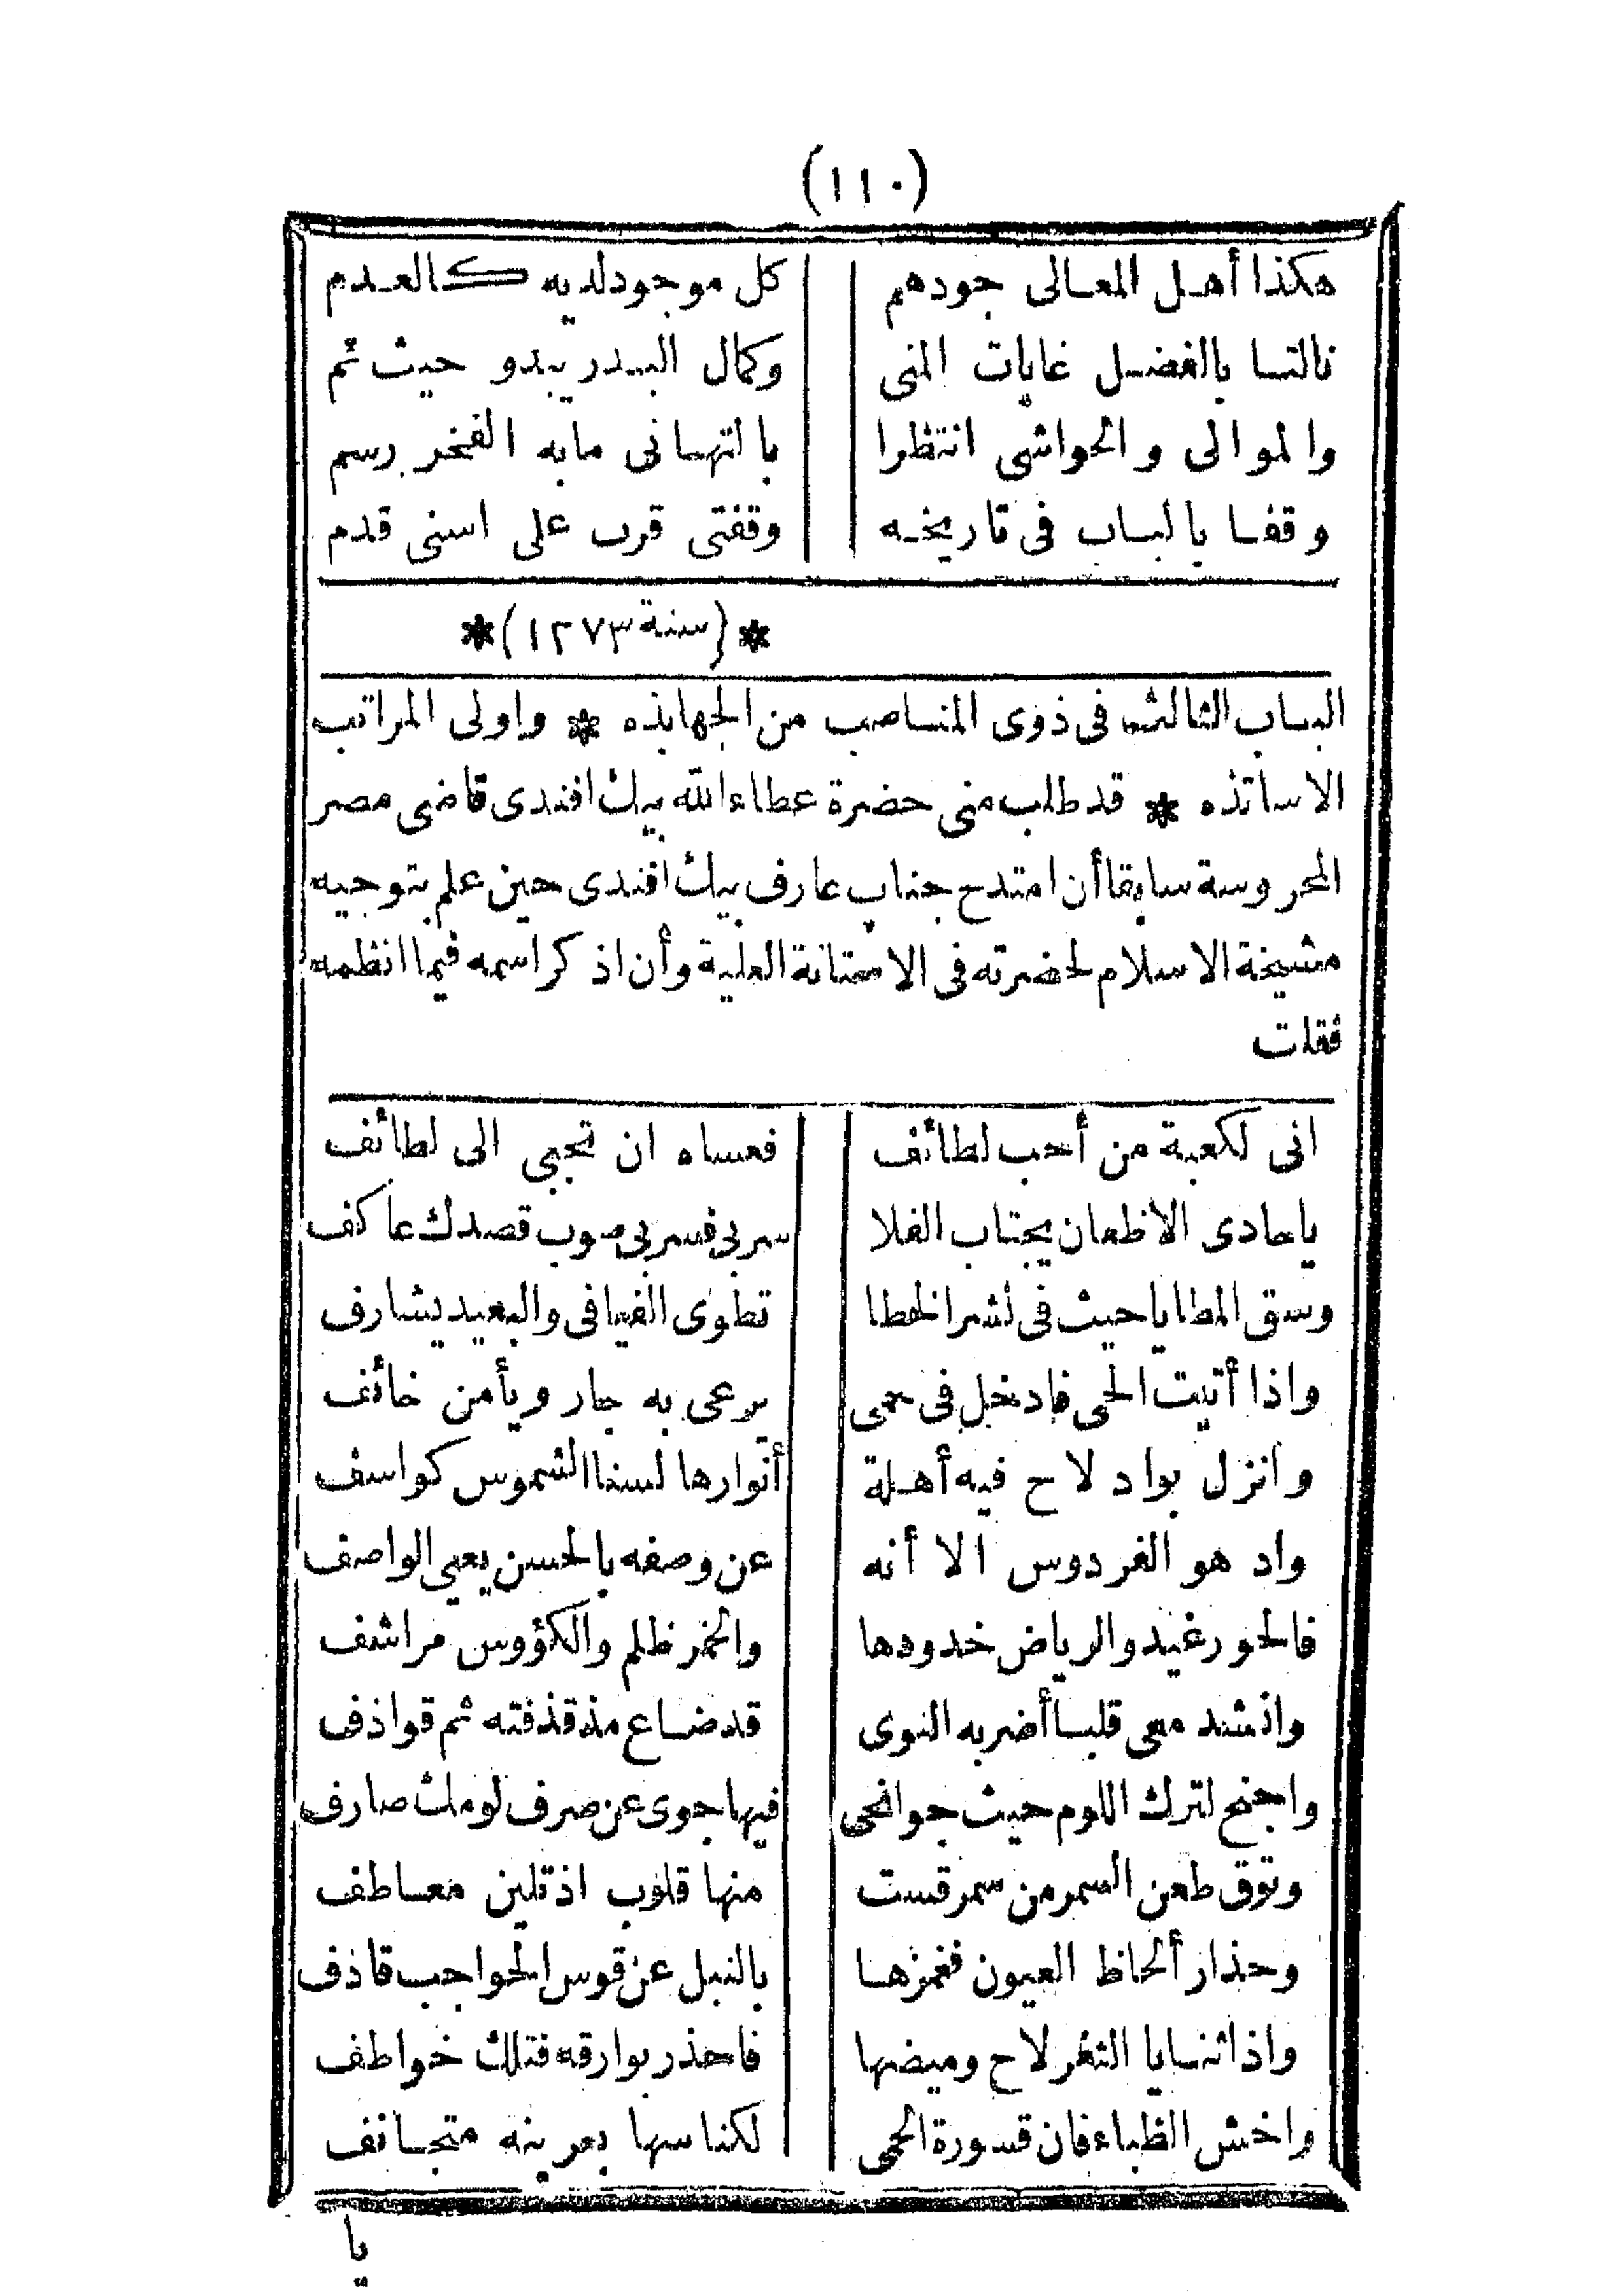 (١١٠)
هكذا أهل المعالى جودهم كل موجود لديه كالعدم
نالتا بالفضل غايات المنى وكمال البدر يبدو حيث تم
والموالى والحواشى انتظرا بالتهانى مابه الفخر رسم
وقفا بالباب فى تاريخه وقفتى قرب على اسنى قدم
*(سنة ١٢٧٣)*
الباب الثالث فى ذوى المناصب من الجهابذه * واولى المراتب
الاساتذه * قد طلب منى حضرة عطاءالله بيك افندى قاضى مصر
المحروسة سابقا أن امتدح جناب عارف بيك افندى حين علم بتوجيه
مشيخة الاسلام لحضرته فى الاستانة العلية وأن اذكر اسمه فيما انظمه
فقلت
انى لكعبة من أحب لطائف فعساه ان تجبى الى لطائف
ياحادى الاظعان يجتاب الفلا سربى فسربى صوب قصدك عاكف
وسق المطايا حيث فى نشر الخطا تطوى الفيافى والبعيد يشارف
واذا أتيت الحى فادخل فى حمى يرعى به جار ويأمن خائف
وانزل بواد لاح فيه أهلة أنوارها لسنا الشموس كواسف
واد هو الفردوس الا أنه عن وصفه بالحسن يعيى الواصف
فالحور غيد والرياض خدودها والخمر ظلم والكؤوس مراشف
وانشد معى قلبا أضر به النوى قد ضاع مذ قذفته ثم قواذف
واجنح لترك اللوم حيث جوانحى فيها جوى عن صرف لومك صارف
وتوق طعن السمر من سمر قست منها قلوب اذ تلين معاطف
وحذار ألحاظ العيون فغمزها بالنبل عن قوس الحواجب قاذف
واذا ثنايا الثغر لاح وميضها فاحذر بوارقه فتلك خواطف
واخش الظباء فان قسورة الحمى لكناسها بعرينه متجانف
يا